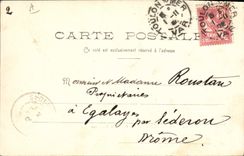 2
TOULON S MER
VAR
TOULON S MER
VAR
CARTE POSTALE
Ce côté est exclusivement réservé à l'adresse
Monsieur et Madame Roustan
Propriétaires
à Egalayes
par Séderon
Drôme